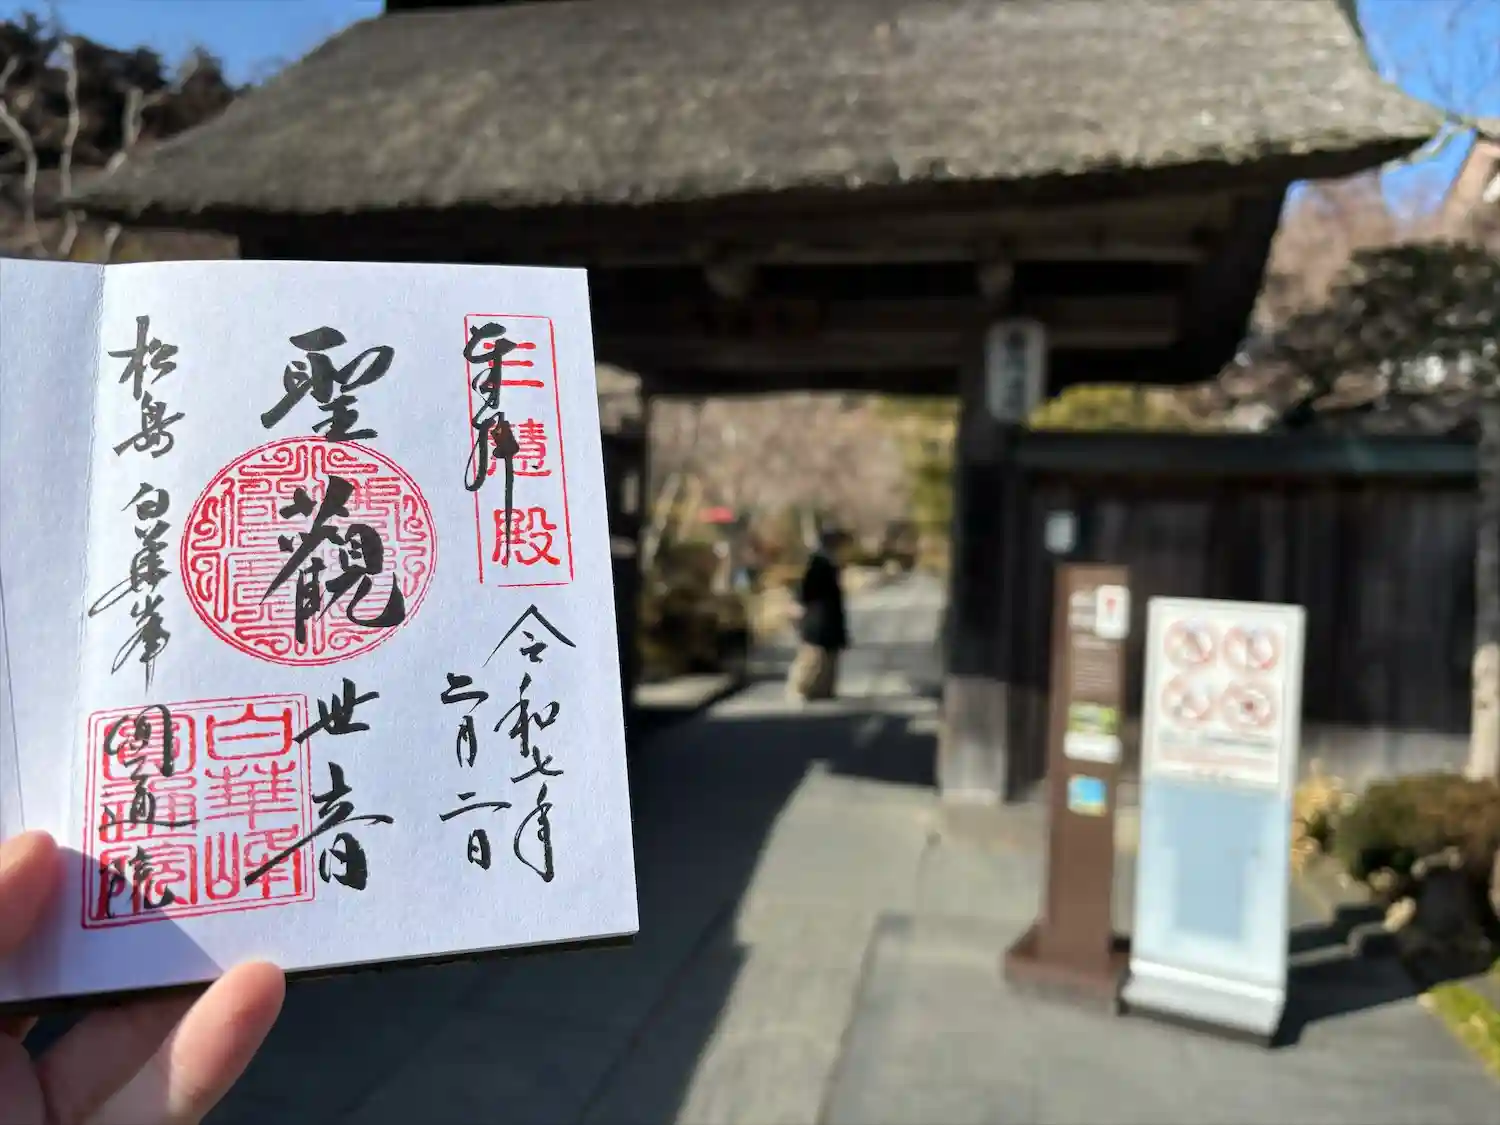 奉拝
三慧殿
令和七年
二月二日
聖観世音
松島 白華峰
圓通院
白華峰
圓通院